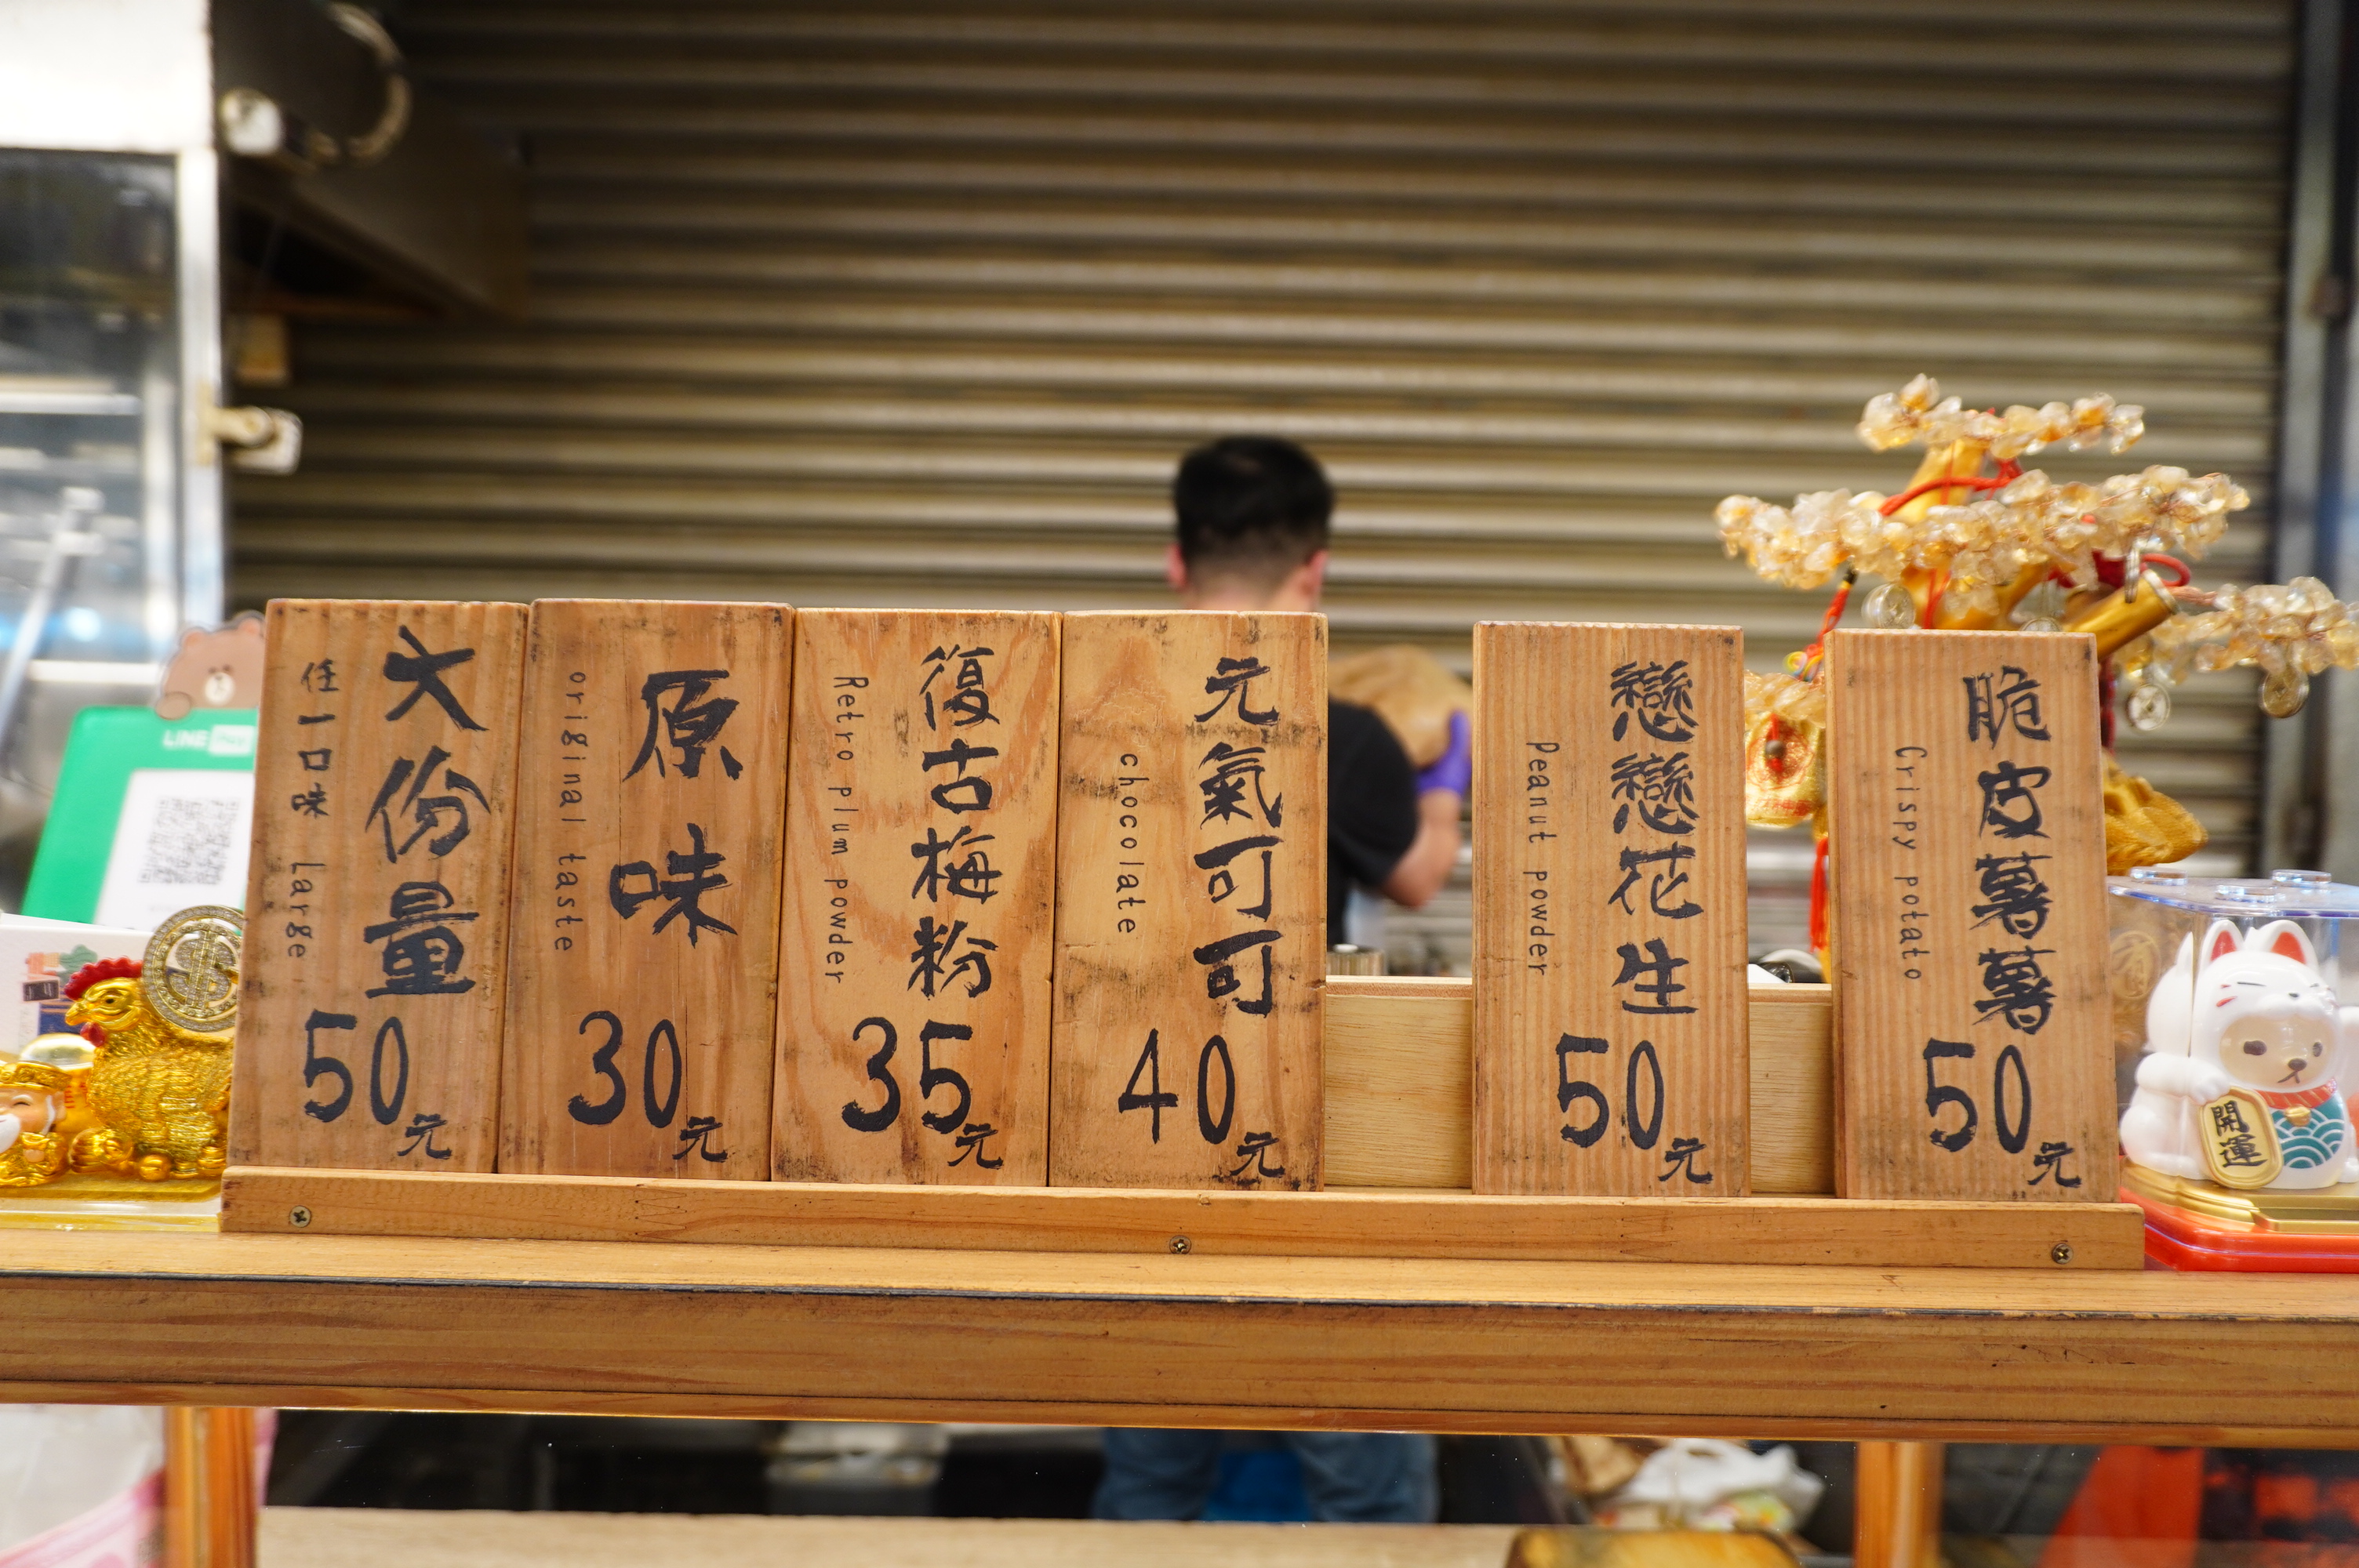 大份量
任一口味 Large
50元
原味
original taste
30元
復古梅粉
Retro plum powder
35元
元氣可可
chocolate
40元
戀戀花生
Peanut powder
50元
脆皮薯薯
Crispy potato
50元
LINE Pay
開運